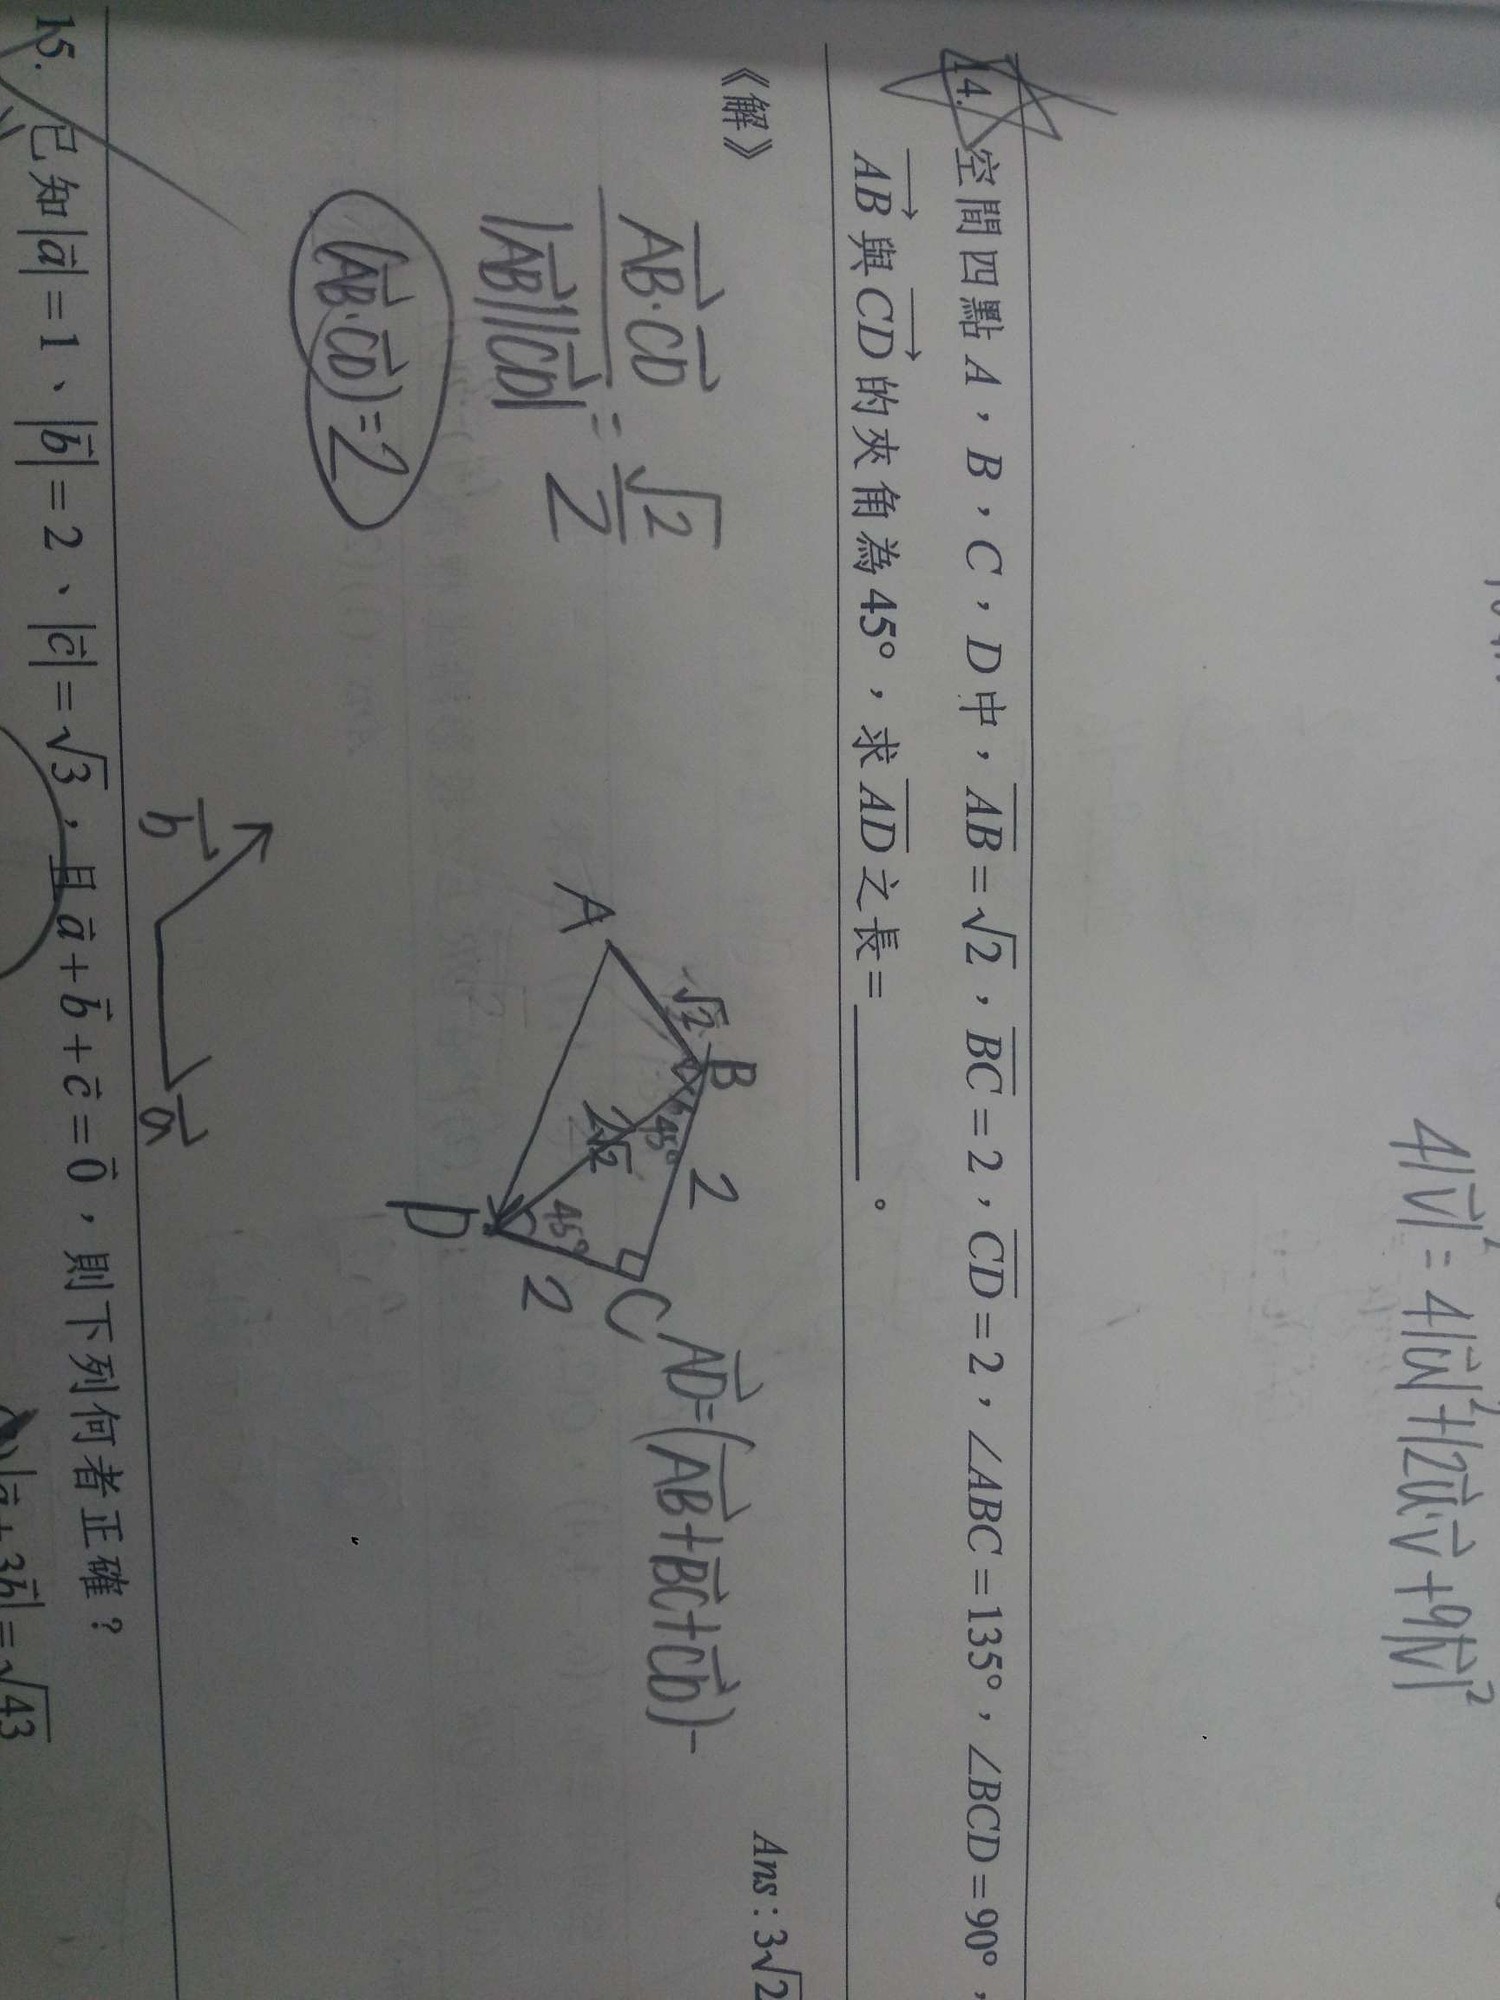 4|v⃗|² = 4|u⃗|²+12u⃗·v⃗+9|v⃗|²
14. 空間四點 A,B,C,D中,AB=√2,BC=2,CD=2,∠ABC=135°,∠BCD=90°,
AB與CD的夾角為45°,求AD之長=______。
《解》
Ans:3√2
AB·CD
|AB||CD|
=
√2
2
(AB·CD)=2
A
√2
B
45°
2
2√2
45°
D
2
C
AD=(AB+BC+CD)
b
a
15. 已知|a⃗|=1、|b⃗|=2、|c⃗|=√3,且a⃗+b⃗+c⃗=0⃗,則下列何者正確?
|a⃗+3b⃗|=√43